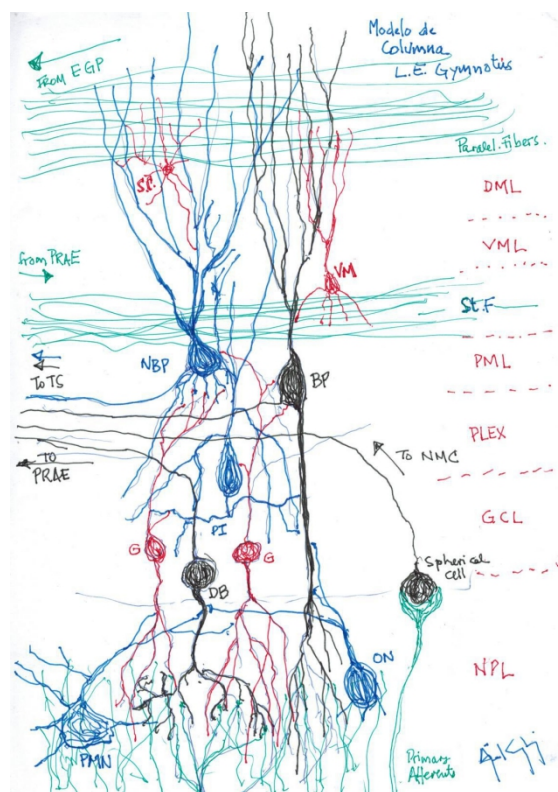 Modelo de
Columna
L.E. Gymnotus
FROM EGP
Paralel. Fibers.
DML
St.
VML
from PRAE
VM
St.F
NBP
BP
PML
TO TS
PLEX
TO
PRAE
TO NMC
PI
GCL
G
G
DB
Spherical
cell
NPL
ON
PMN
Primary
Afferents